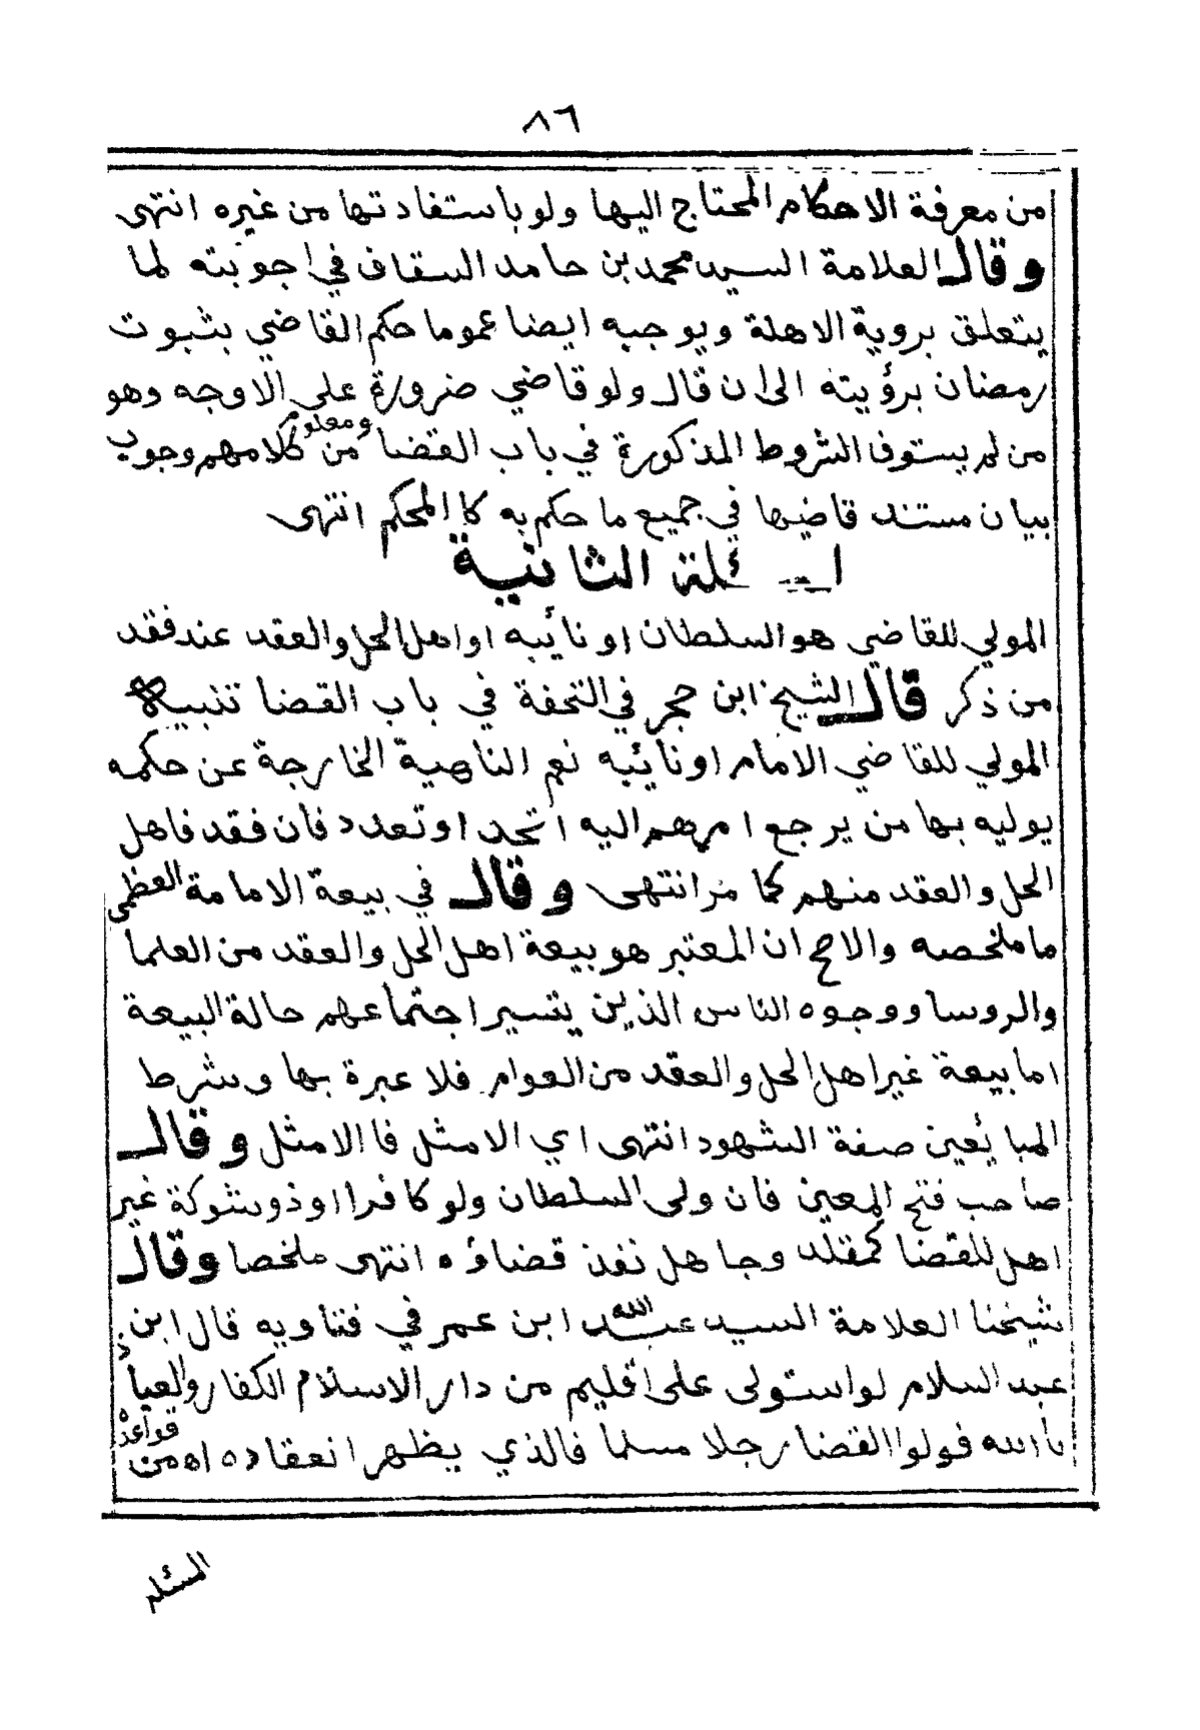 ٨٦
من معرفة الاحكام المحتاج اليها ولو باستفادتها من غيره انتهى
وقال العلامة السيد محمد بن حامد السقاف في اجوبته لما
يتعلق بروية الاهلة ويوجبه ايضا عموما حكم القاضي بثبوت
رمضان برؤيته الى ان قال ولو قاضي ضرورة على الاوجه وهو
من لم يستوف الشروط المذكورة في باب القضا ومعلوم من كلامهم وجوب
بيان مستند قاضيها في جميع ما حكم به كا المحكم انتهى
المسئلة الثانية
المولي للقاضي هو السلطان او نائيبه او اهل الحل والعقد عند فقد
من ذكر قال الشيخ ابن حجر في التحفة في باب القضا تنبيه
المولي للقاضي الامام او نائيبه نعم الناحية الخارجة عن حكمه
يوليه بها من يرجع امرهم اليه اتحد او تعدد فان فقد فاهل
الحل والعقد منهم كما مر انتهى وقال في بيعة الامامة العظمى
ما ملخصه والاصح ان المعتبر هو بيعة اهل الحل والعقد من العلما
والروسا ووجوه الناس الذين يتسير اجتماعهم حالة البيعة
اما بيعة غير اهل الحل والعقد من العوام فلا عبرة بها وشرط
المبايعين صفة الشهود انتهى اي الامثل فا الامثل وقال
صاحب فتح المعين فان ولى السلطان ولو كافرا او ذو شوكة غير
اهل للقضا كمقلد وجاهل نفذ قضاؤه انتهى ملخصا وقال
شيخنا العلامة السيد عبد الله ابن عمر في فتاويه قال ابن
عبد السلام لو استولى على اقليم من دار الاسلام الكفار والعياذ
بالله فولوا القضا رجلا مسلما فالذي يظهر انعقاده اه من قواعده
المسئلة